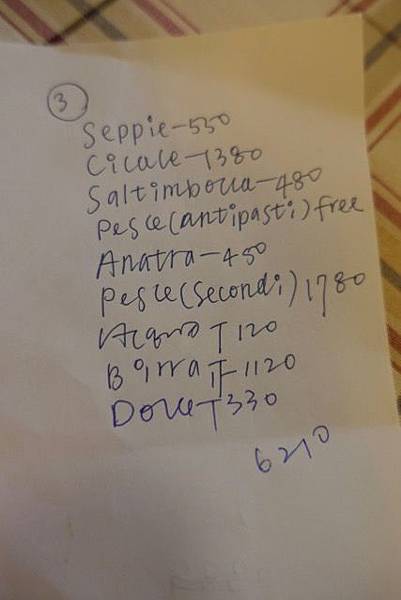 3
Seppie-550
Cicale-1380
Saltimbocca-480
Pesce(antipasti)free
Anatra-450
Pesce(Secondi)1780
Acqua T 120
Birra 1120
Dolce T 330
6210